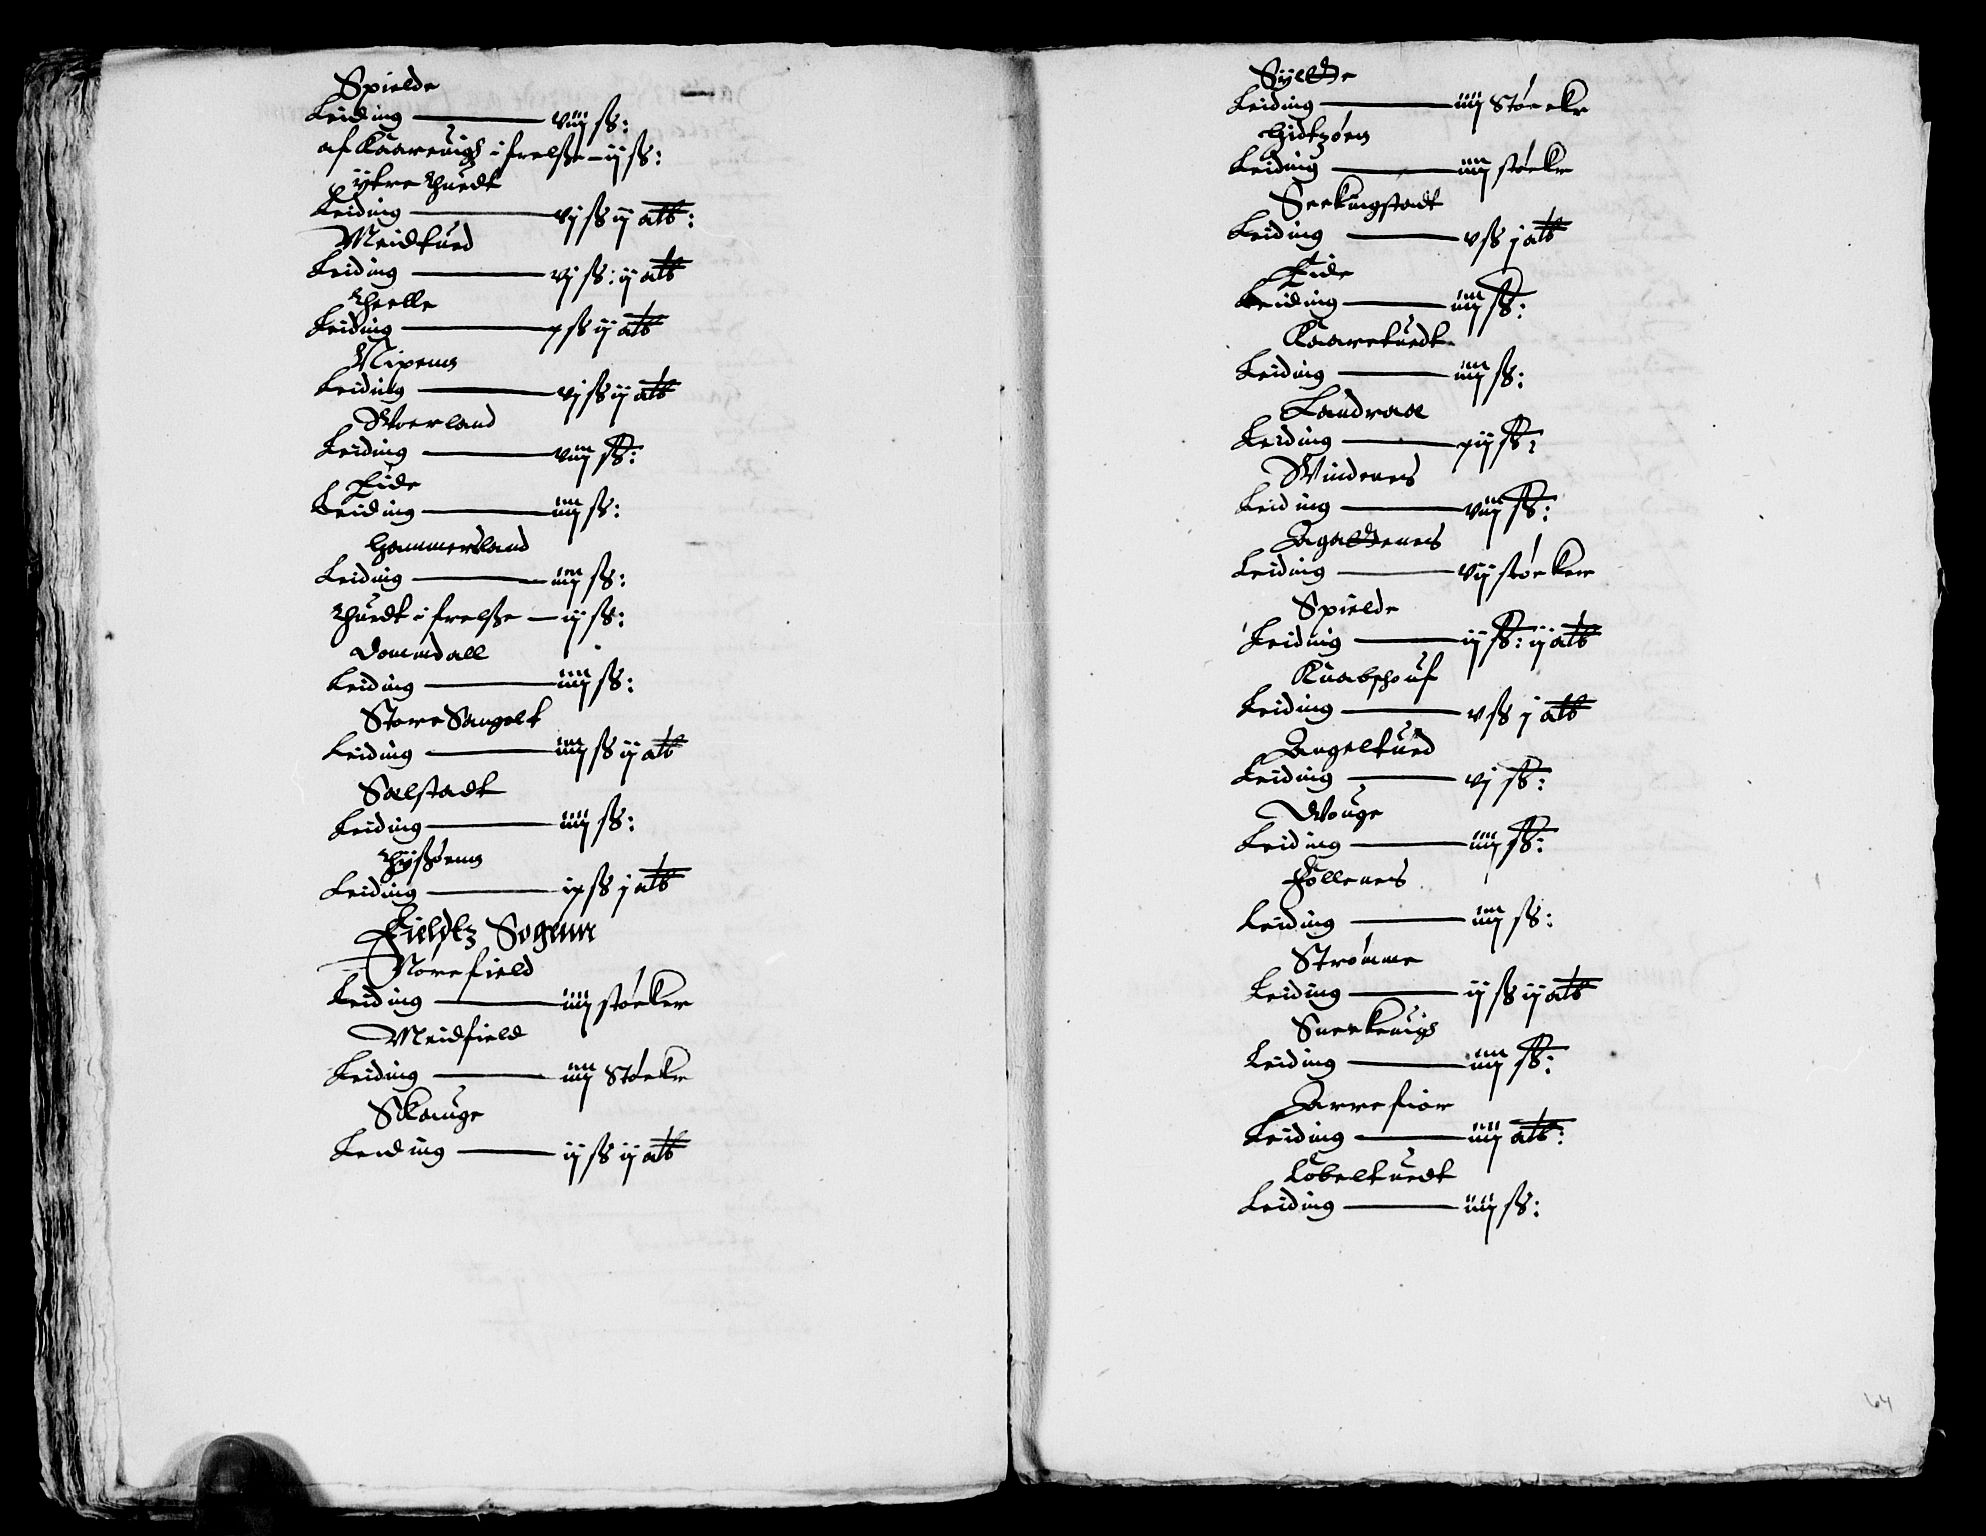 Spielde
Leiding — viij ß:
af Kaareuigh i frelße — ij ß:
ÿtre Thuedt
Leiding — vj ß ij alb:
Meidtued
Leiding — vj ß: ij alb
Thielle
Leiding — x ß ij alb
Nipenn
Leiding — vj ß ij alb
Moerland
Leiding — viij ß:
Eide
Leiding — iiij ß:
Hammersland
Leiding — iiij ß:
Thuedt i frelße — ij ß:
Domindall
Leiding — iiij ß:
Store Sangelt
Leiding — iiij ß ij alb
Sælstadt
Leiding — iiij ß:
Thÿßøenn
Leiding — ix ß j alb
Fieldtz Sogenn
Nørefield
Leiding — iiij støcker
Meidfield
Leiding — iiij Støckr
Skouge
Leiding — ij ß ij alb
Sÿltte
Leiding — iiij Støeckr
Hidtzøen
Leiding — iiij støckr
Seckingstadt
Leiding — v ß j alb
Eide
Leiding — iiij ß:
Kaaretuedt
Leiding — iiij ß:
Landraae
Leiding — xij ß:
Windenes
Leiding — viij ß:
Agattenes
Leiding — vij støcker
Spielde
Leiding — ij ß: ij alb
Knabshouf
Leiding — v ß j alb
Angeltued
Leiding — vj ß:
Wouge
Leiding — iiij ß:
Follenes
Leiding — iiij ß:
Strømme
Leiding — ij ß ij alb
Sneckeuigh
Leiding — iiij ß:
Arrefior
Leiding — iiij alb:
Lobeltuedt
Leiding — iiij ß:
64